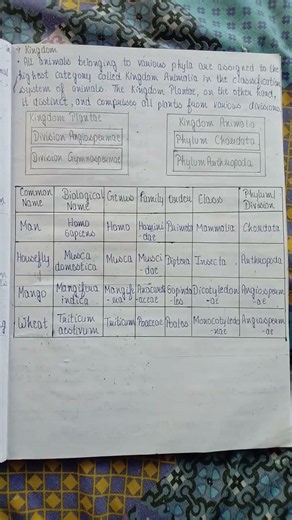 → Kingdom
• All animals belonging to various phyla are assigned to the
highest category called Kingdom Animalia in the classification
system of animals. The Kingdom Plantae, on the other hand,
is distinct, and comprises all plants from various divisions.
Kingdom Plantae
Division Angiospermae
Division Gymnospermae
Kingdom Animalia
Phylum Chordata
Phylum Arthropoda
Common Name | Biological Name | Genus | Family | Order | Class | Phylum/ Division
Man | Homo Sapiens | Homo | Homini-dae | Primata | Mammalia | Chordata
Housefly | Musca domestica | Musca | Musci-dae | Diptera | Insecta | Arthropoda
Mango | Mangifera indica | Mangife-ra | Anacardi-aceae | Sapinda-les | Dicotyledon-ae | Angiosperm-ae
Wheat | Triticum aestivum | Triticum | Poaceae | Poales | Monocotyledo-nae | Angiosperm-ae